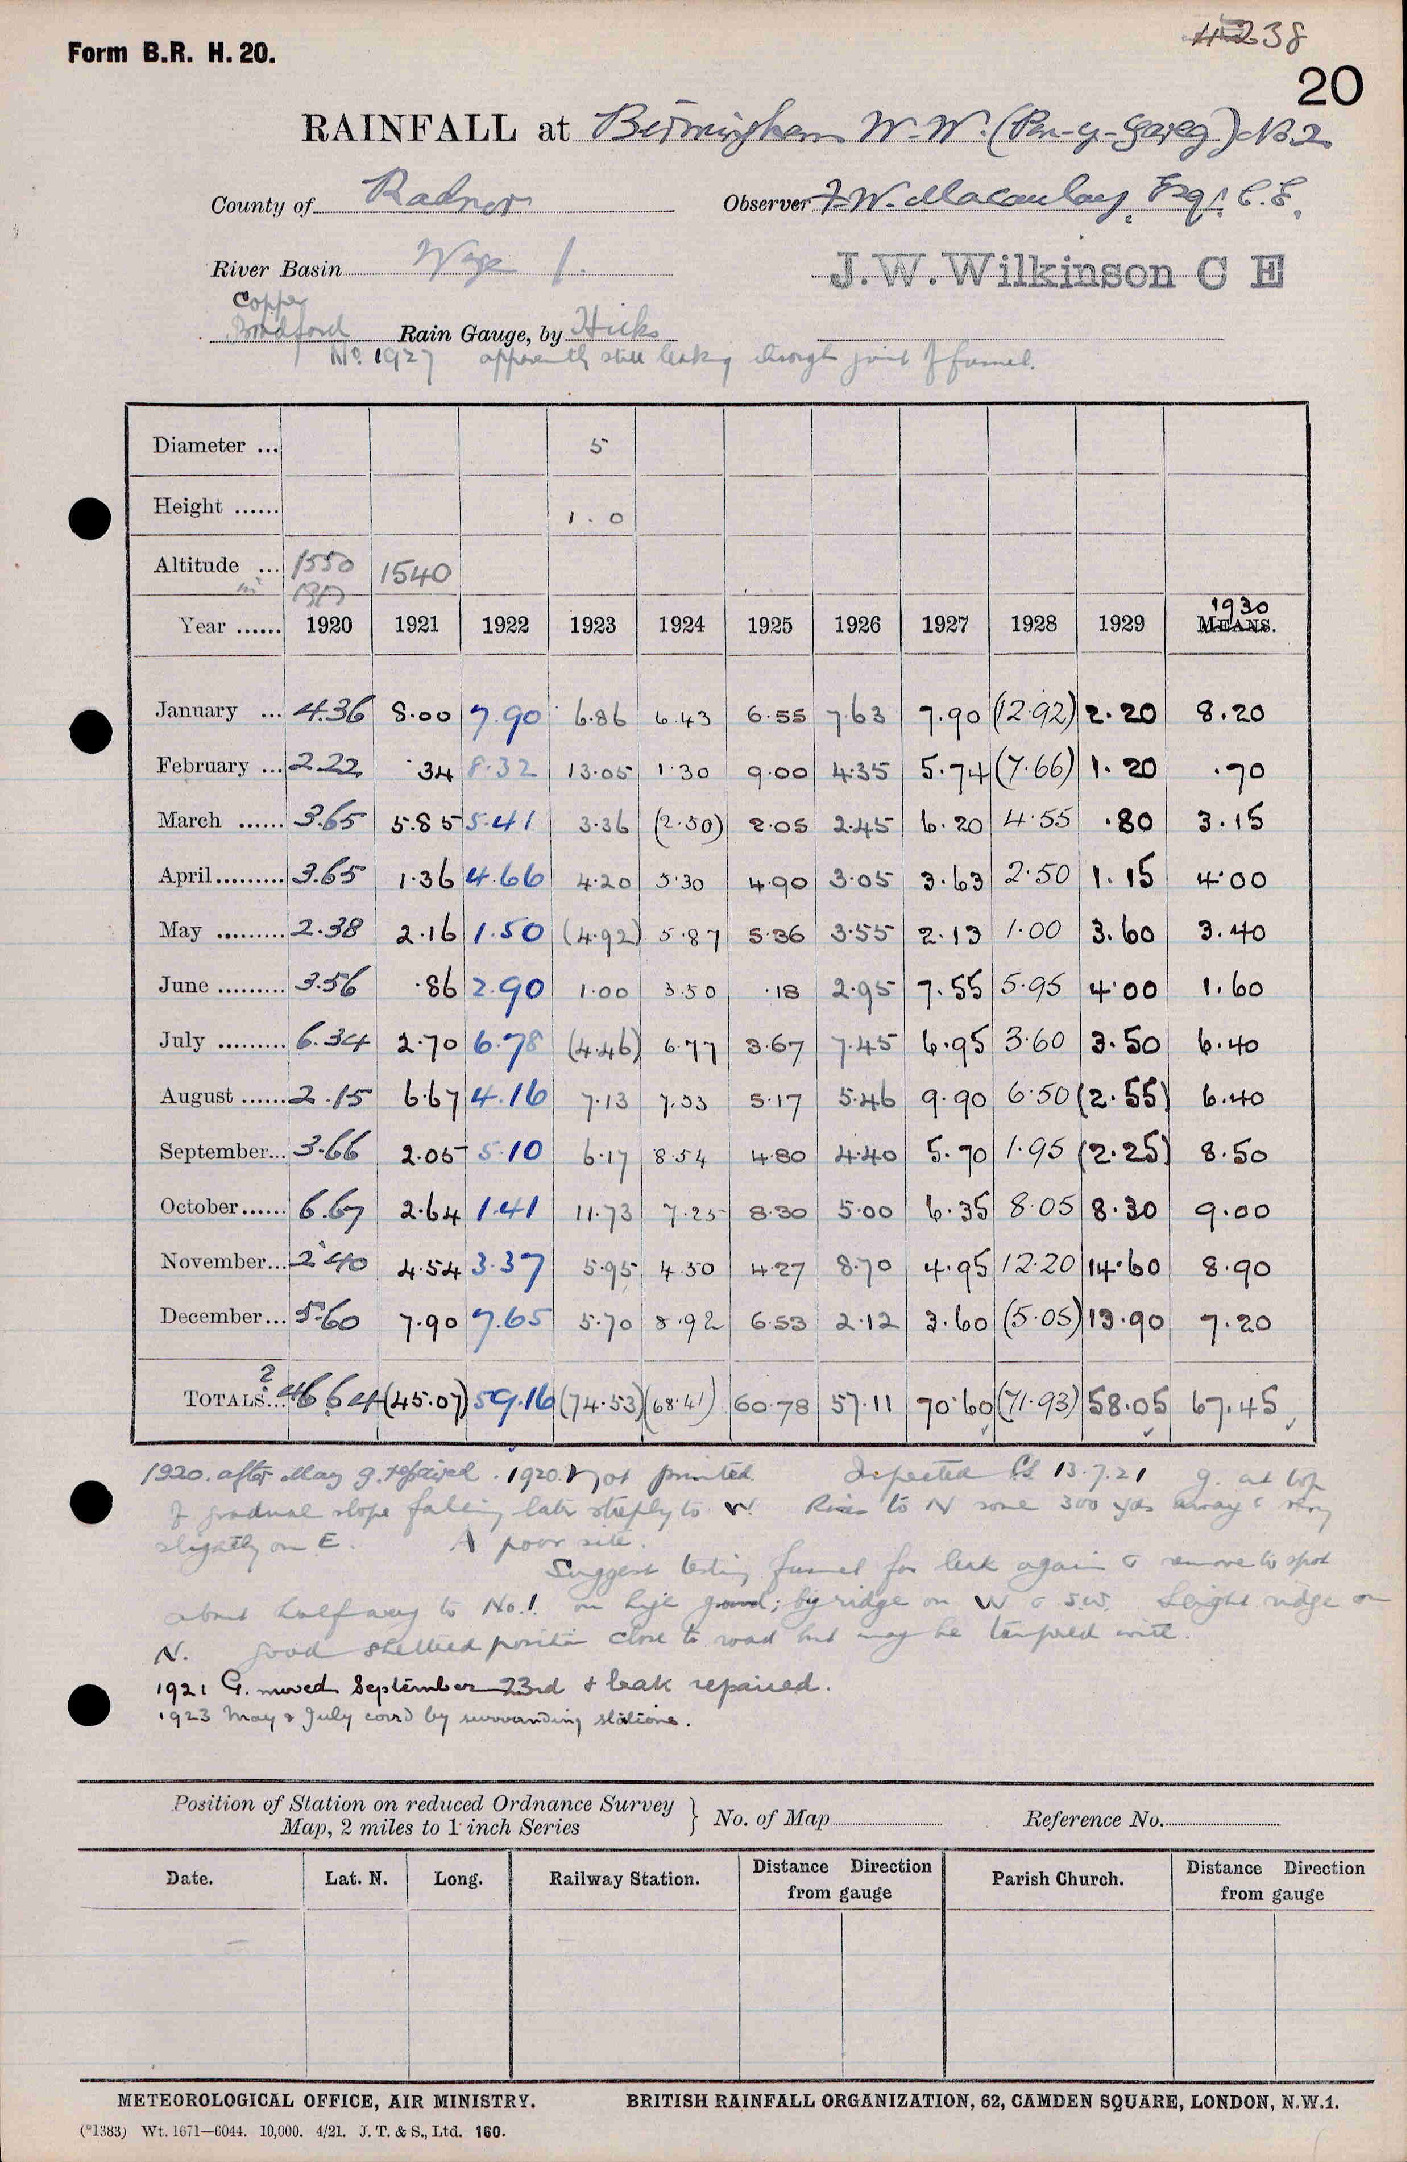 4238
Form B.R. H. 20.
20
RAINFALL at Birmingham W.W. (Pen-y-Gareg) No. 2
County of Radnor Observer F.W. Macaulay, Esq. C.E.
River Basin Wye 1. J. W. Wilkinson C E
Copper
Bradford Rain Gauge, by Hicks
No. 1927 apparently still leaking through joint of funnel.
Diameter ... 5
Height ...... 1.0
Altitude ... 1550 1540
Year ...... 1920 1921 1922 1923 1924 1925 1926 1927 1928 1929 1930 MEANS.
January ... 4.36 8.00 7.90 6.86 6.43 6.55 7.63 7.90 (12.92) 2.20 8.20
February ... 2.22 .34 8.32 13.05 1.30 9.00 4.35 5.74 (7.66) 1.20 .70
March ...... 3.65 5.85 5.41 3.36 (2.50) 2.05 2.45 6.20 4.55 .80 3.15
April ......... 3.65 1.36 4.66 4.20 5.30 4.90 3.05 3.63 2.50 1.15 4.00
May ......... 2.38 2.16 1.50 (4.92) 5.87 5.36 3.55 2.13 1.00 3.60 3.40
June ......... 3.56 .86 2.90 1.00 3.50 .18 2.95 7.55 5.95 4.00 1.60
July ......... 6.34 2.70 6.78 (4.46) 6.77 3.67 7.45 6.95 3.60 3.50 6.40
August ...... 2.15 6.67 4.16 7.13 7.53 5.17 5.46 9.90 6.50 (2.55) 6.40
September... 3.66 2.05 5.10 6.17 8.54 4.80 4.40 5.70 1.95 (2.25) 8.50
October...... 6.67 2.64 1.41 11.73 7.25 8.30 5.00 6.35 8.05 8.30 9.00
November... 2.40 4.54 3.37 5.95 4.50 4.27 8.70 4.95 12.20 14.60 8.90
December... 5.60 7.90 7.65 5.70 8.92 6.53 2.12 3.60 (5.05) 13.90 7.20
TOTALS... ? 46.64 (45.07) 59.16 (74.53) (68.41) 60.78 57.11 70.60 (71.93) 58.05 67.45
1920. after May g. repaired. 1920 not printed. Inspected 13.7.21 g. at top
of gradual slope falling later steeply to W. Rises to N some 300 yds away & very
slightly on E. A poor site.
Suggest testing funnel for leak again & remove to spot
about half way to No. 1. on high ground; big ridge on W & S.W. Slight ridge on
N. Good sheltered position close to road but may be tampered with.
1921 G. moved September 23rd & leak repaired.
1923 May & July corrd by surrounding stations.
Position of Station on reduced Ordnance Survey
Map, 2 miles to 1 inch Series } No. of Map Reference No.
Date. Lat. N. Long. Railway Station. Distance Direction from gauge Parish Church. Distance Direction from gauge
METEOROLOGICAL OFFICE, AIR MINISTRY. BRITISH RAINFALL ORGANIZATION, 62, CAMDEN SQUARE, LONDON, N.W.1.
(*1383) Wt. 1671—6044. 10,000. 4/21. J. T. & S., Ltd. 160.